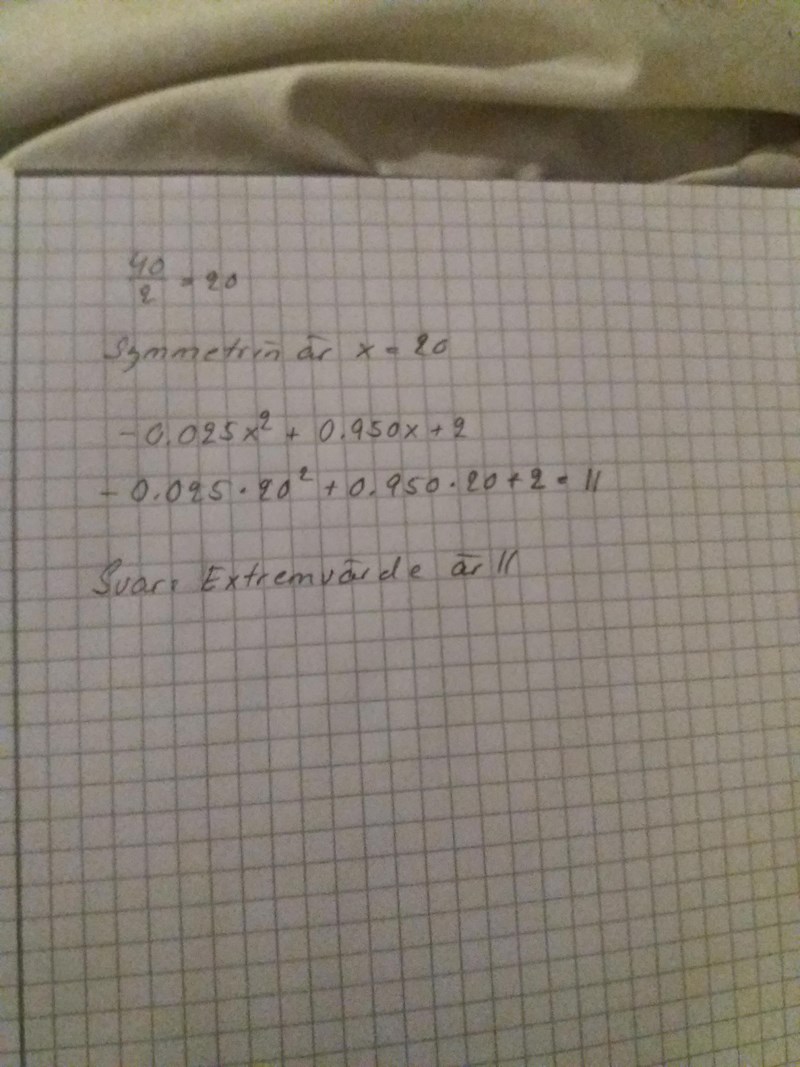 40/2 = 20
Symmetrin är x = 20
-0.025x² + 0.950x + 2
-0.025 · 20² + 0.950 · 20 + 2 = 11
Svar: Extremvärde är 11